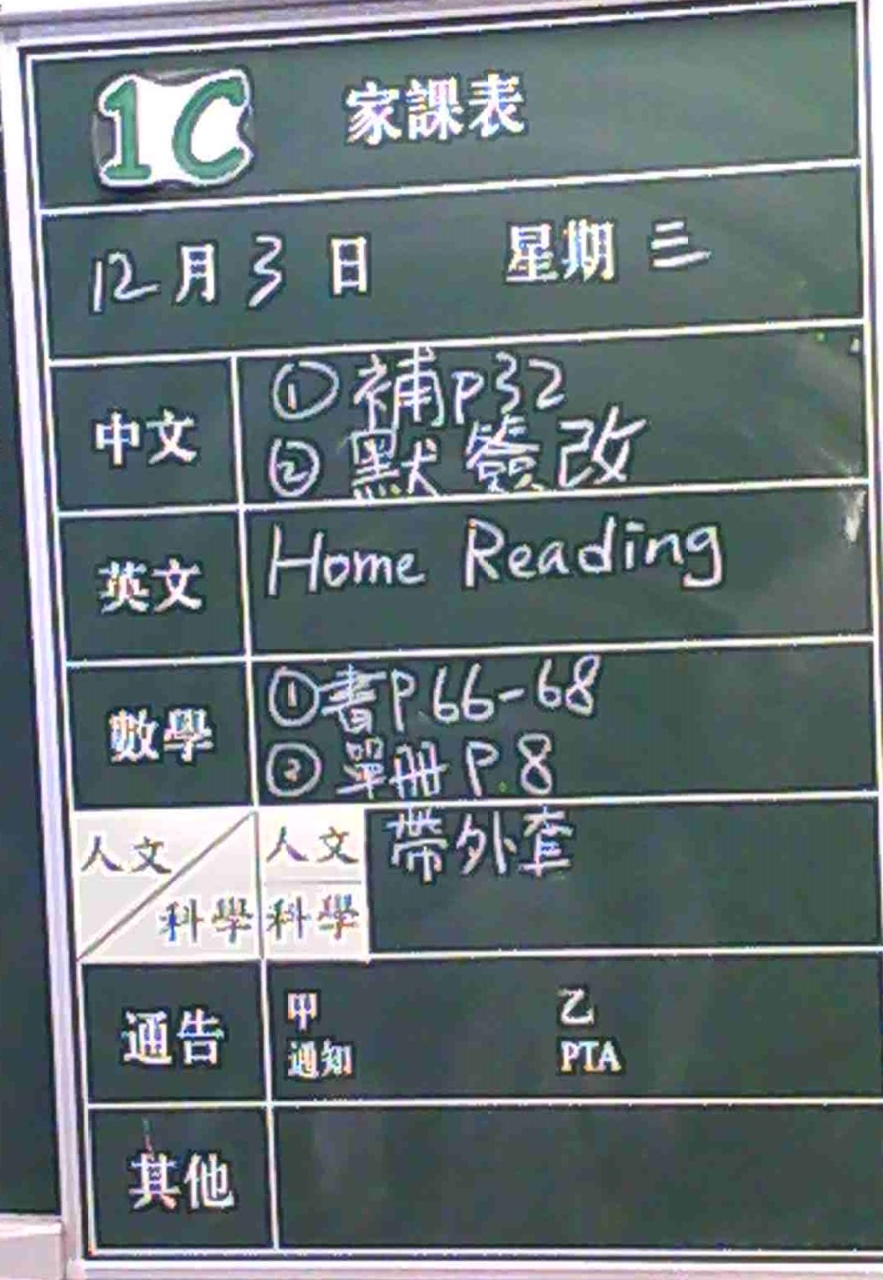 1C 家課表
12月3日 星期三
中文 ①補P32
②默簽改
英文 Home Reading
數學 ①書P.66-68
②單冊 P.8
人文 人文 帶外套
科學 科學
通告 甲 乙
通知 PTA
其他